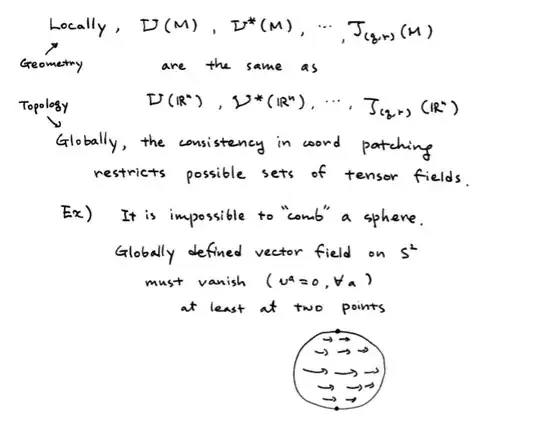 Locally, V(M), V*(M), ..., T(q,r)(M)
Geometry
are the same as
Topology
V(ℝⁿ), V*(ℝⁿ), ..., T(q,r)(ℝⁿ)
Globally, the consistency in coord patching
restricts possible sets of tensor fields.
Ex) It is impossible to "comb" a sphere.
Globally defined vector field on S²
must vanish (vᵃ=0, ∀a)
at least at two points